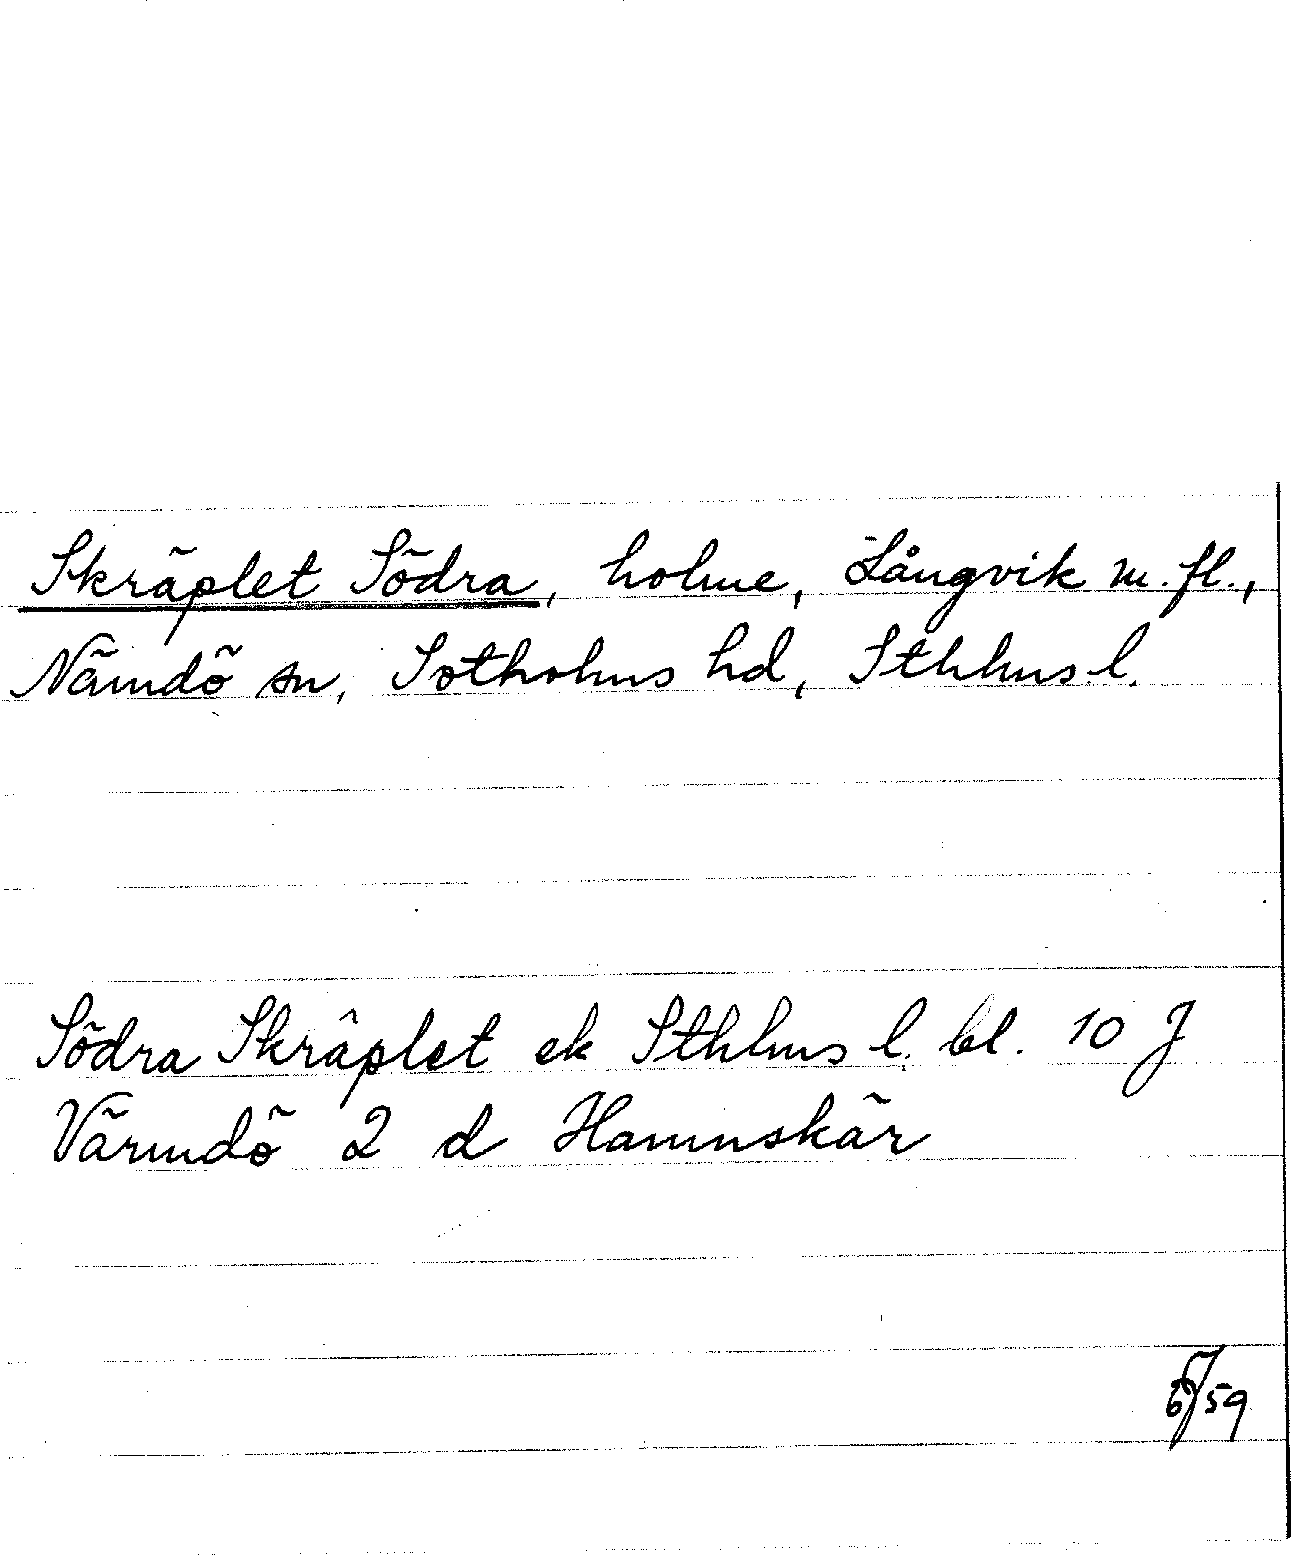 Skräplet Södra, holme, Långvik m. fl.,
Nämdö sn, Sotholms hd, Sthlms l.
Södra Skräplet ek Sthlms l. bl. 10 J
Värmdö 2 d Hamnskär
59